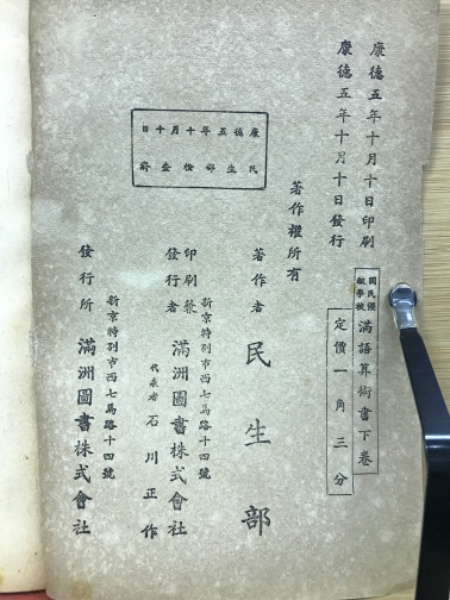 康德五年十月十日印刷
康德五年十月十日發行
國民優級學校
滿語算術書下卷
定價一角三分
著作權所有
康德五年十月十日
民生部檢查濟
著作者 民生部
新京特別市西七馬路十四號
印刷兼發行者 滿洲圖書株式會社
代表者 石川正作
新京特別市西七馬路十四號
發行所 滿洲圖書株式會社